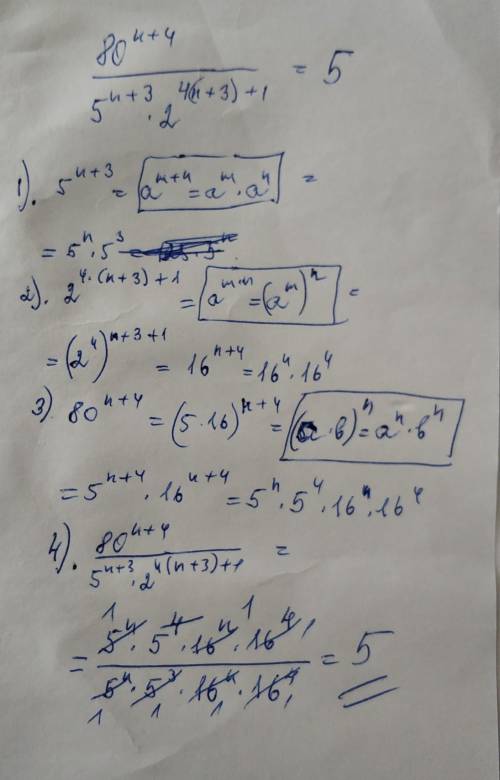 80^(n+4) / (5^(n+3) · 2^(4(n+3)+1)) = 5
1). 5^(n+3) = a^(m+n) = a^m · a^n =
= 5^n · 5^3
2). 2^(4·(n+3)+1) = a^(m·n) = (a^m)^n =
= (2^4)^(n+3+1) = 16^(n+4) = 16^n · 16^4
3) 80^(n+4) = (5·16)^(n+4) = (a·b)^n = a^n · b^n
= 5^(n+4) · 16^(n+4) = 5^n · 5^4 · 16^n · 16^4
4). 80^(n+4) / (5^(n+3) · 2^(4(n+3)+1)) =
= (5^n · 5^4 · 16^n · 16^4) / (5^n · 5^3 · 16^n · 16^4) = 5